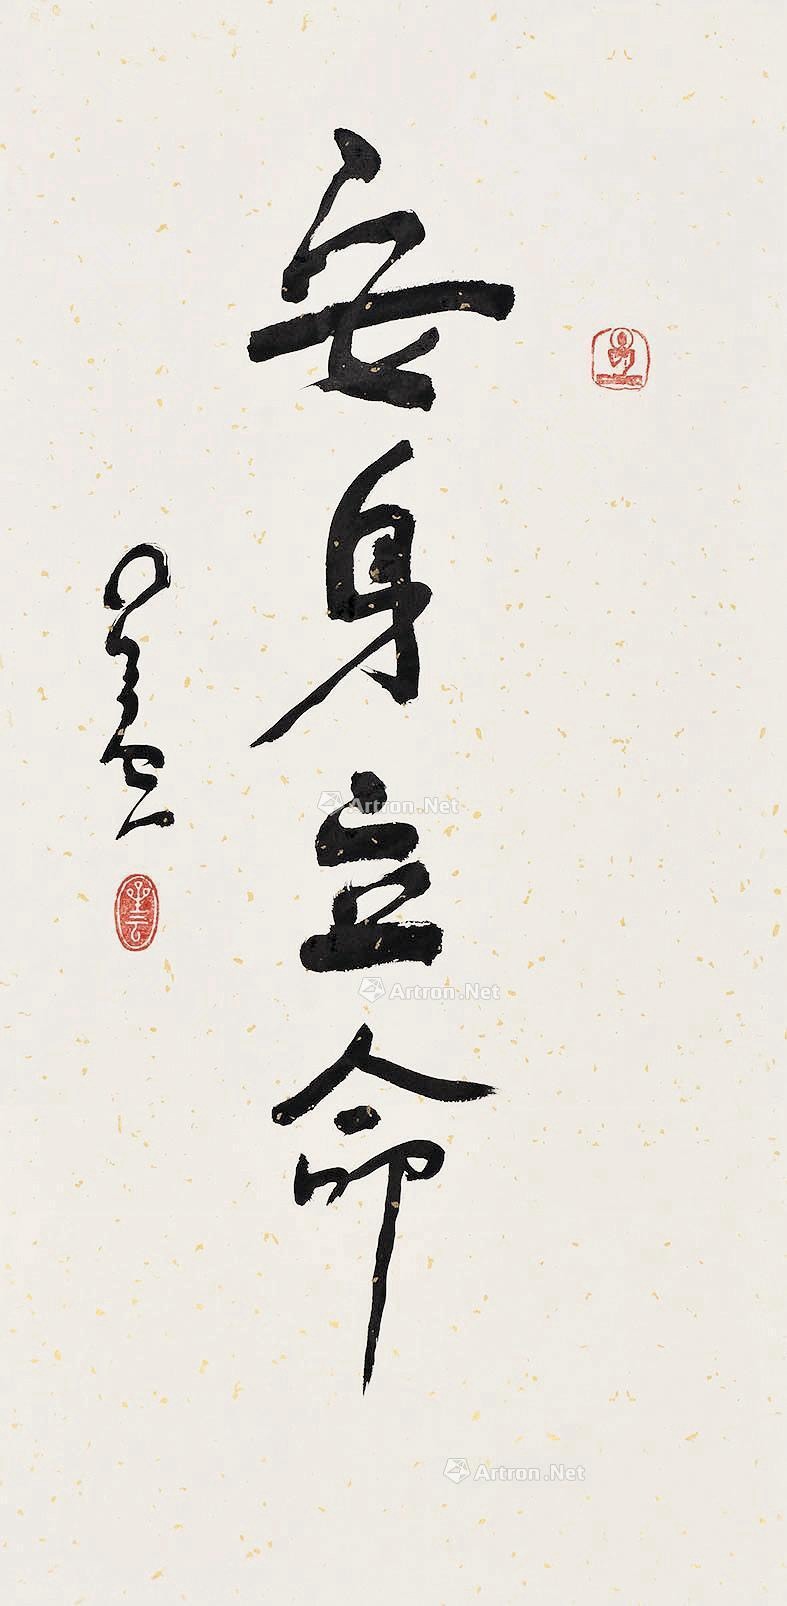 安身立命
Artron.Net
Artron.Net
Artron.Net